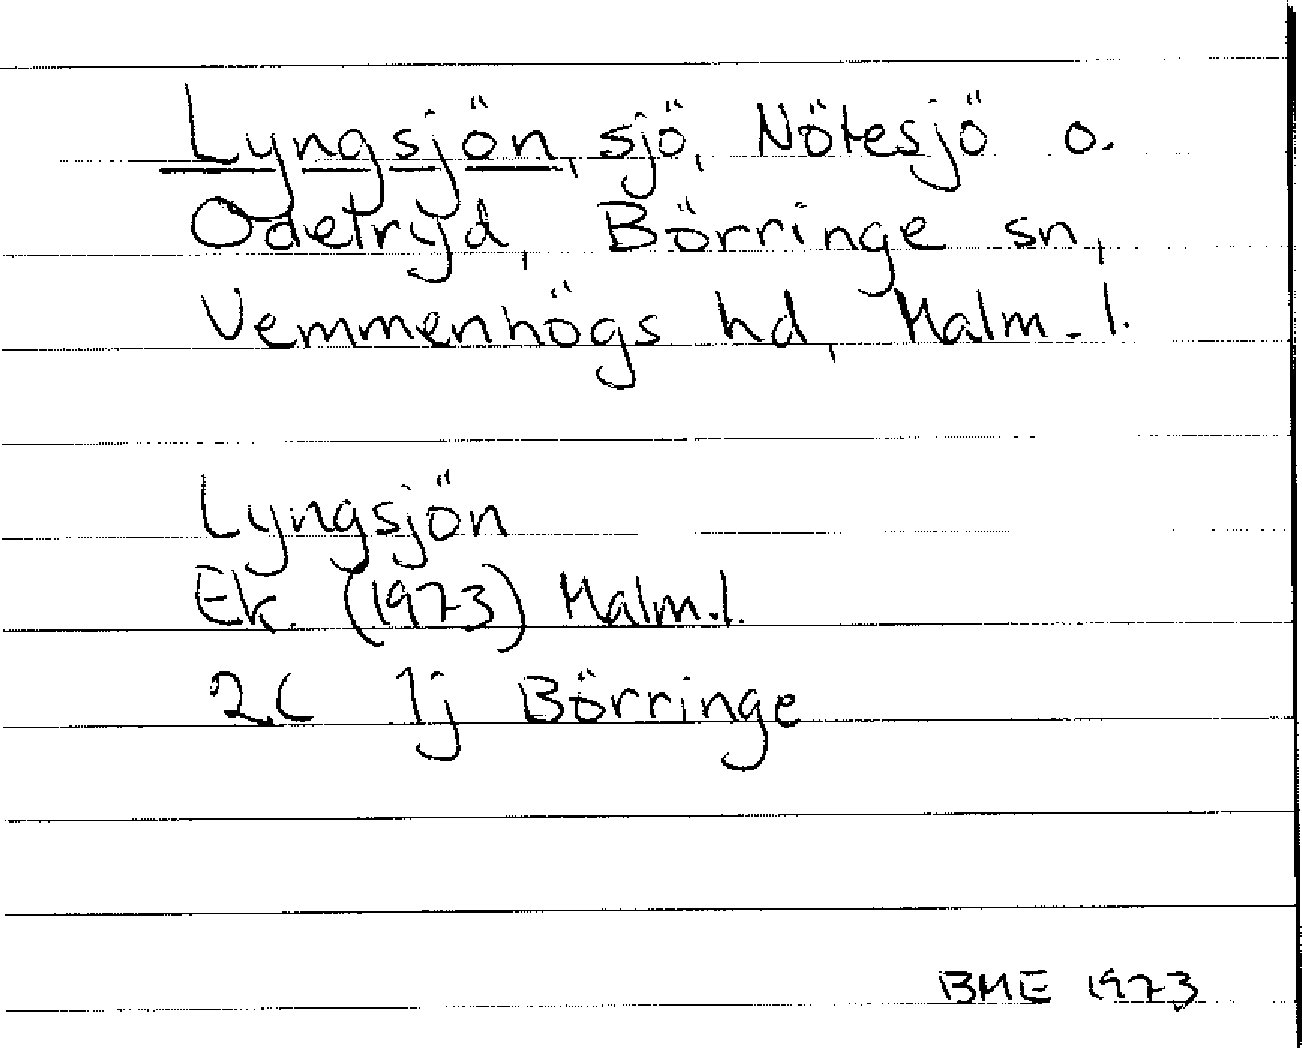 Lyngsjön, sjö, Nötesjö o.
Odetryd, Börringe sn,
Vemmenhögs hd, Malm. l.
Lyngsjön
Ek. (1973) Malm.l.
2C 1j Börringe
BME 1973